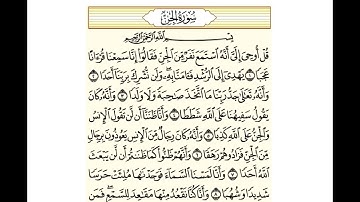 سُورَةُ الجِنِّ
بِسْمِ اللَّهِ الرَّحْمَٰنِ الرَّحِيمِ
قُلْ أُوحِىَ إِلَىَّ أَنَّهُ ٱسْتَمَعَ نَفَرٌ مِّنَ ٱلْجِنِّ فَقَالُوٓا۟ إِنَّا سَمِعْنَا قُرْءَانًا
عَجَبًا ١ يَهْدِىٓ إِلَى ٱلرُّشْدِ فَـَٔامَنَّا بِهِۦ وَلَن نُّشْرِكَ بِرَبِّنَآ أَحَدًا ٢
وَأَنَّهُۥ تَعَٰلَىٰ جَدُّ رَبِّنَا مَا ٱتَّخَذَ صَٰحِبَةً وَلَا وَلَدًا ٣ وَأَنَّهُۥ كَانَ
يَقُولُ سَفِيهُنَا عَلَى ٱللَّهِ شَطَطًا ٤ وَأَنَّا ظَنَنَّآ أَن لَّن تَقُولَ ٱلْإِنسُ
وَٱلْجِنُّ عَلَى ٱللَّهِ كَذِبًا ٥ وَأَنَّهُۥ كَانَ رِجَالٌ مِّنَ ٱلْإِنسِ يَعُوذُونَ بِرِجَالٍ
مِّنَ ٱلْجِنِّ فَزَادُوهُمْ رَهَقًا ٦ وَأَنَّهُمْ ظَنُّوا۟ كَمَا ظَنَنتُمْ أَن لَّن يَبْعَثَ
ٱللَّهُ أَحَدًا ٧ وَأَنَّا لَمَسْنَا ٱلسَّمَآءَ فَوَجَدْنَٰهَا مُلِئَتْ حَرَسًا
شَدِيدًا وَشُهُبًا ٨ وَأَنَّا كُنَّا نَقْعُدُ مِنْهَا مَقَٰعِدَ لِلسَّمْعِ فَمَن